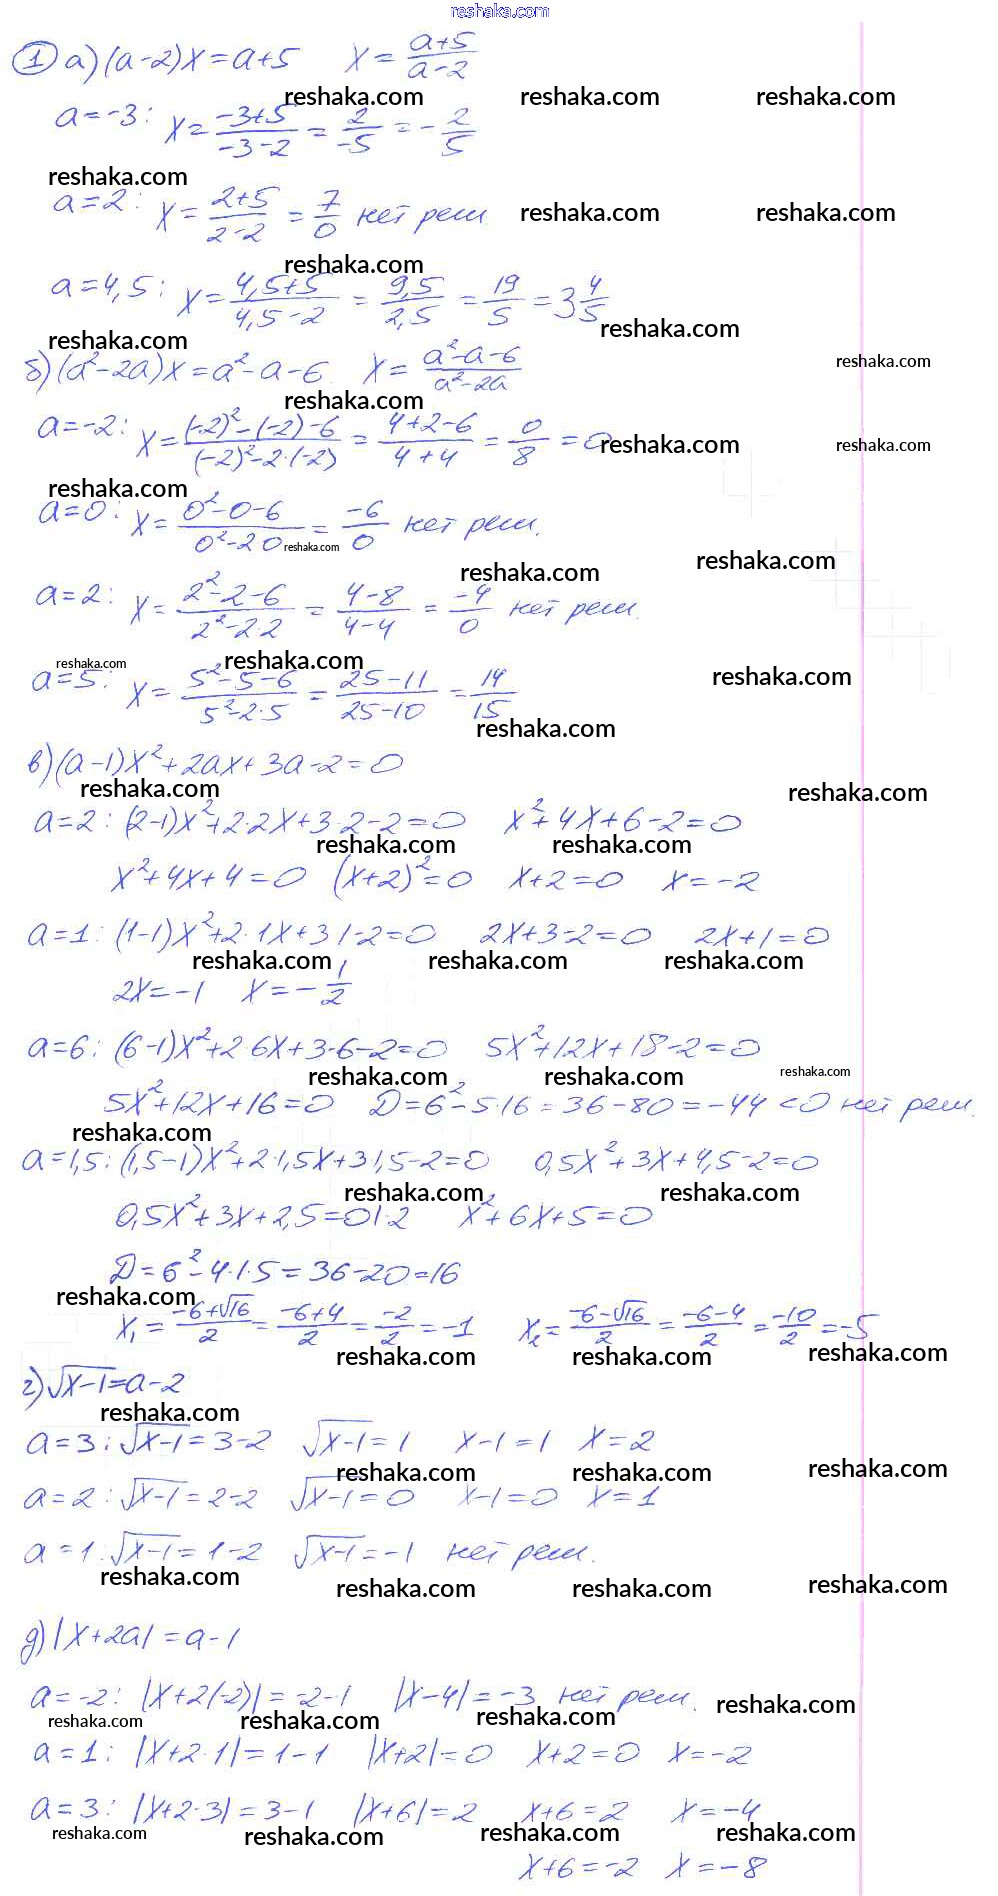 reshaka.com
1 а) (a-2)x=a+5 x=(a+5)/(a-2)
reshaka.com reshaka.com reshaka.com
a=-3: x=(-3+5)/(-3-2)=2/-5=-2/5
reshaka.com
a=2: x=(2+5)/(2-2)=7/0 нет реш reshaka.com reshaka.com
reshaka.com
a=4,5: x=(4,5+5)/(4,5-2)=9,5/2,5=19/5=3 4/5
reshaka.com
reshaka.com
б) (a²-2a)x=a²-a-6 x=(a²-a-6)/(a²-2a) reshaka.com
reshaka.com
a=-2: x=((-2)²-(-2)-6)/((-2)²-2·(-2))=(4+2-6)/(4+4)=0/8=0 reshaka.com reshaka.com
reshaka.com
a=0: x=(0²-0-6)/(0²-2 0)=-6/0 нет реш.
reshaka.com
reshaka.com reshaka.com
a=2: x=(2²-2-6)/(2²-2·2)=(4-8)/(4-4)=-4/0 нет реш.
reshaka.com reshaka.com reshaka.com
a=5: x=(5²-5-6)/(5²-2·5)=(25-11)/(25-10)=14/15
reshaka.com
в) (a-1)x²+2ax+3a-2=0
reshaka.com reshaka.com
a=2: (2-1)x²+2·2x+3·2-2=0 x²+4x+6-2=0
reshaka.com reshaka.com
x²+4x+4=0 (x+2)²=0 x+2=0 x=-2
a=1: (1-1)x²+2·1x+3 1-2=0 2x+3-2=0 2x+1=0
reshaka.com reshaka.com reshaka.com
2x=-1 x=-1/2
a=6: (6-1)x²+2·6x+3·6-2=0 5x²+12x+18-2=0
reshaka.com reshaka.com reshaka.com
5x²+12x+16=0 D=6²-5·16=36-80=-44<0 нет реш.
reshaka.com
a=1,5: (1,5-1)x²+2·1,5x+3·1,5-2=0 0,5x²+3x+4,5-2=0
reshaka.com reshaka.com
0,5x²+3x+2,5=0|·2 x²+6x+5=0
D=6²-4·1·5=36-20=16
reshaka.com
x₁=(-6+√16)/2=(-6+4)/2=-2/2=-1 x₂=(-6-√16)/2=(-6-4)/2=-10/2=-5
reshaka.com reshaka.com reshaka.com
г) √(x-1)=a-2
reshaka.com
a=3: √(x-1)=3-2 √(x-1)=1 x-1=1 x=2
reshaka.com reshaka.com reshaka.com
a=2: √(x-1)=2-2 √(x-1)=0 x-1=0 x=1
a=1: √(x-1)=1-2 √(x-1)=-1 нет реш.
reshaka.com reshaka.com reshaka.com reshaka.com
д) |x+2a|=a-1
a=-2: |x+2(-2)|=-2-1 |x-4|=-3 нет реш. reshaka.com
reshaka.com reshaka.com reshaka.com
a=1: |x+2·1|=1-1 |x+2|=0 x+2=0 x=-2
a=3: |x+2·3|=3-1 |x+6|=2 x+6=2 x=-4
reshaka.com reshaka.com reshaka.com reshaka.com
x+6=-2 x=-8